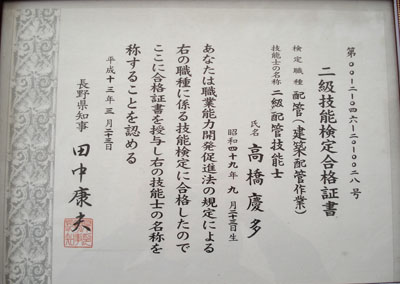 二級技能検定合格証書
検定職種 配管(建築配管作業)
技能士の名称 二級配管技能士
氏名 高橋慶多
昭和四十九年 九月二十三日生
あなたは職業能力開発促進法の規定による
右の職種に係る技能検定に合格したので
ここに合格証書を授与し右の技能士の名称を
称することを認める
平成十三年三月二十三日
長野県知事 田中康夫